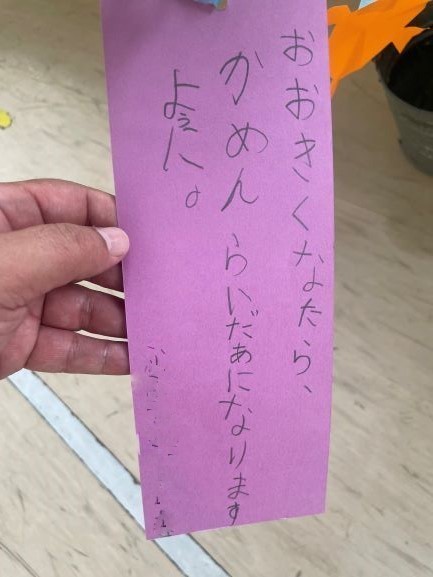 おおきくなたら、
かめんらいだあになります
ように。